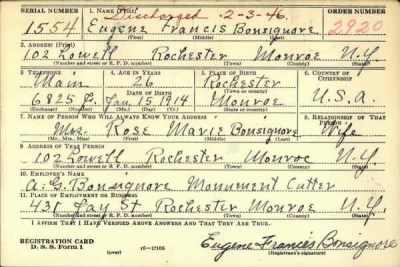 SERIAL NUMBER 1. NAME (Print) ORDER NUMBER
Discharged 2-3-46
1554 Eugene Francis Bonsignore 2920
(First) (Middle) (Last)
2. ADDRESS (Print)
102 Lowell Rochester Monroe N.Y.
(Number and street or R. F. D. number) (Town) (County) (State)
3. TELEPHONE 4. AGE IN YEARS 5. PLACE OF BIRTH 6. COUNTRY OF CITIZENSHIP
Main 26 Rochester
DATE OF BIRTH
6825 J. Jan. 15 1914 Monroe U.S.A.
(Exchange) (Number) (Mo.) (Day) (Yr.) (State or country)
7. NAME OF PERSON WHO WILL ALWAYS KNOW YOUR ADDRESS 8. RELATIONSHIP OF THAT PERSON
Mrs. Rose Marie Bonsignore Wife
(Mr., Mrs., Miss) (First) (Middle) (Last)
9. ADDRESS OF THAT PERSON
102 Lowell Rochester Monroe N.Y.
(Number and street or R. F. D. number) (Town) (County) (State)
10. EMPLOYER'S NAME
A. G. Bonsignore Monument Cutter
11. PLACE OF EMPLOYMENT OR BUSINESS
431 Jay St. Rochester Monroe N.Y.
(Number and street or R. F. D. number) (Town) (County) (State)
I AFFIRM THAT I HAVE VERIFIED ABOVE ANSWERS AND THAT THEY ARE TRUE.
REGISTRATION CARD
D. S. S. Form 1 (over) 16-17105 Eugene Francis Bonsignore
(Registrant's signature)